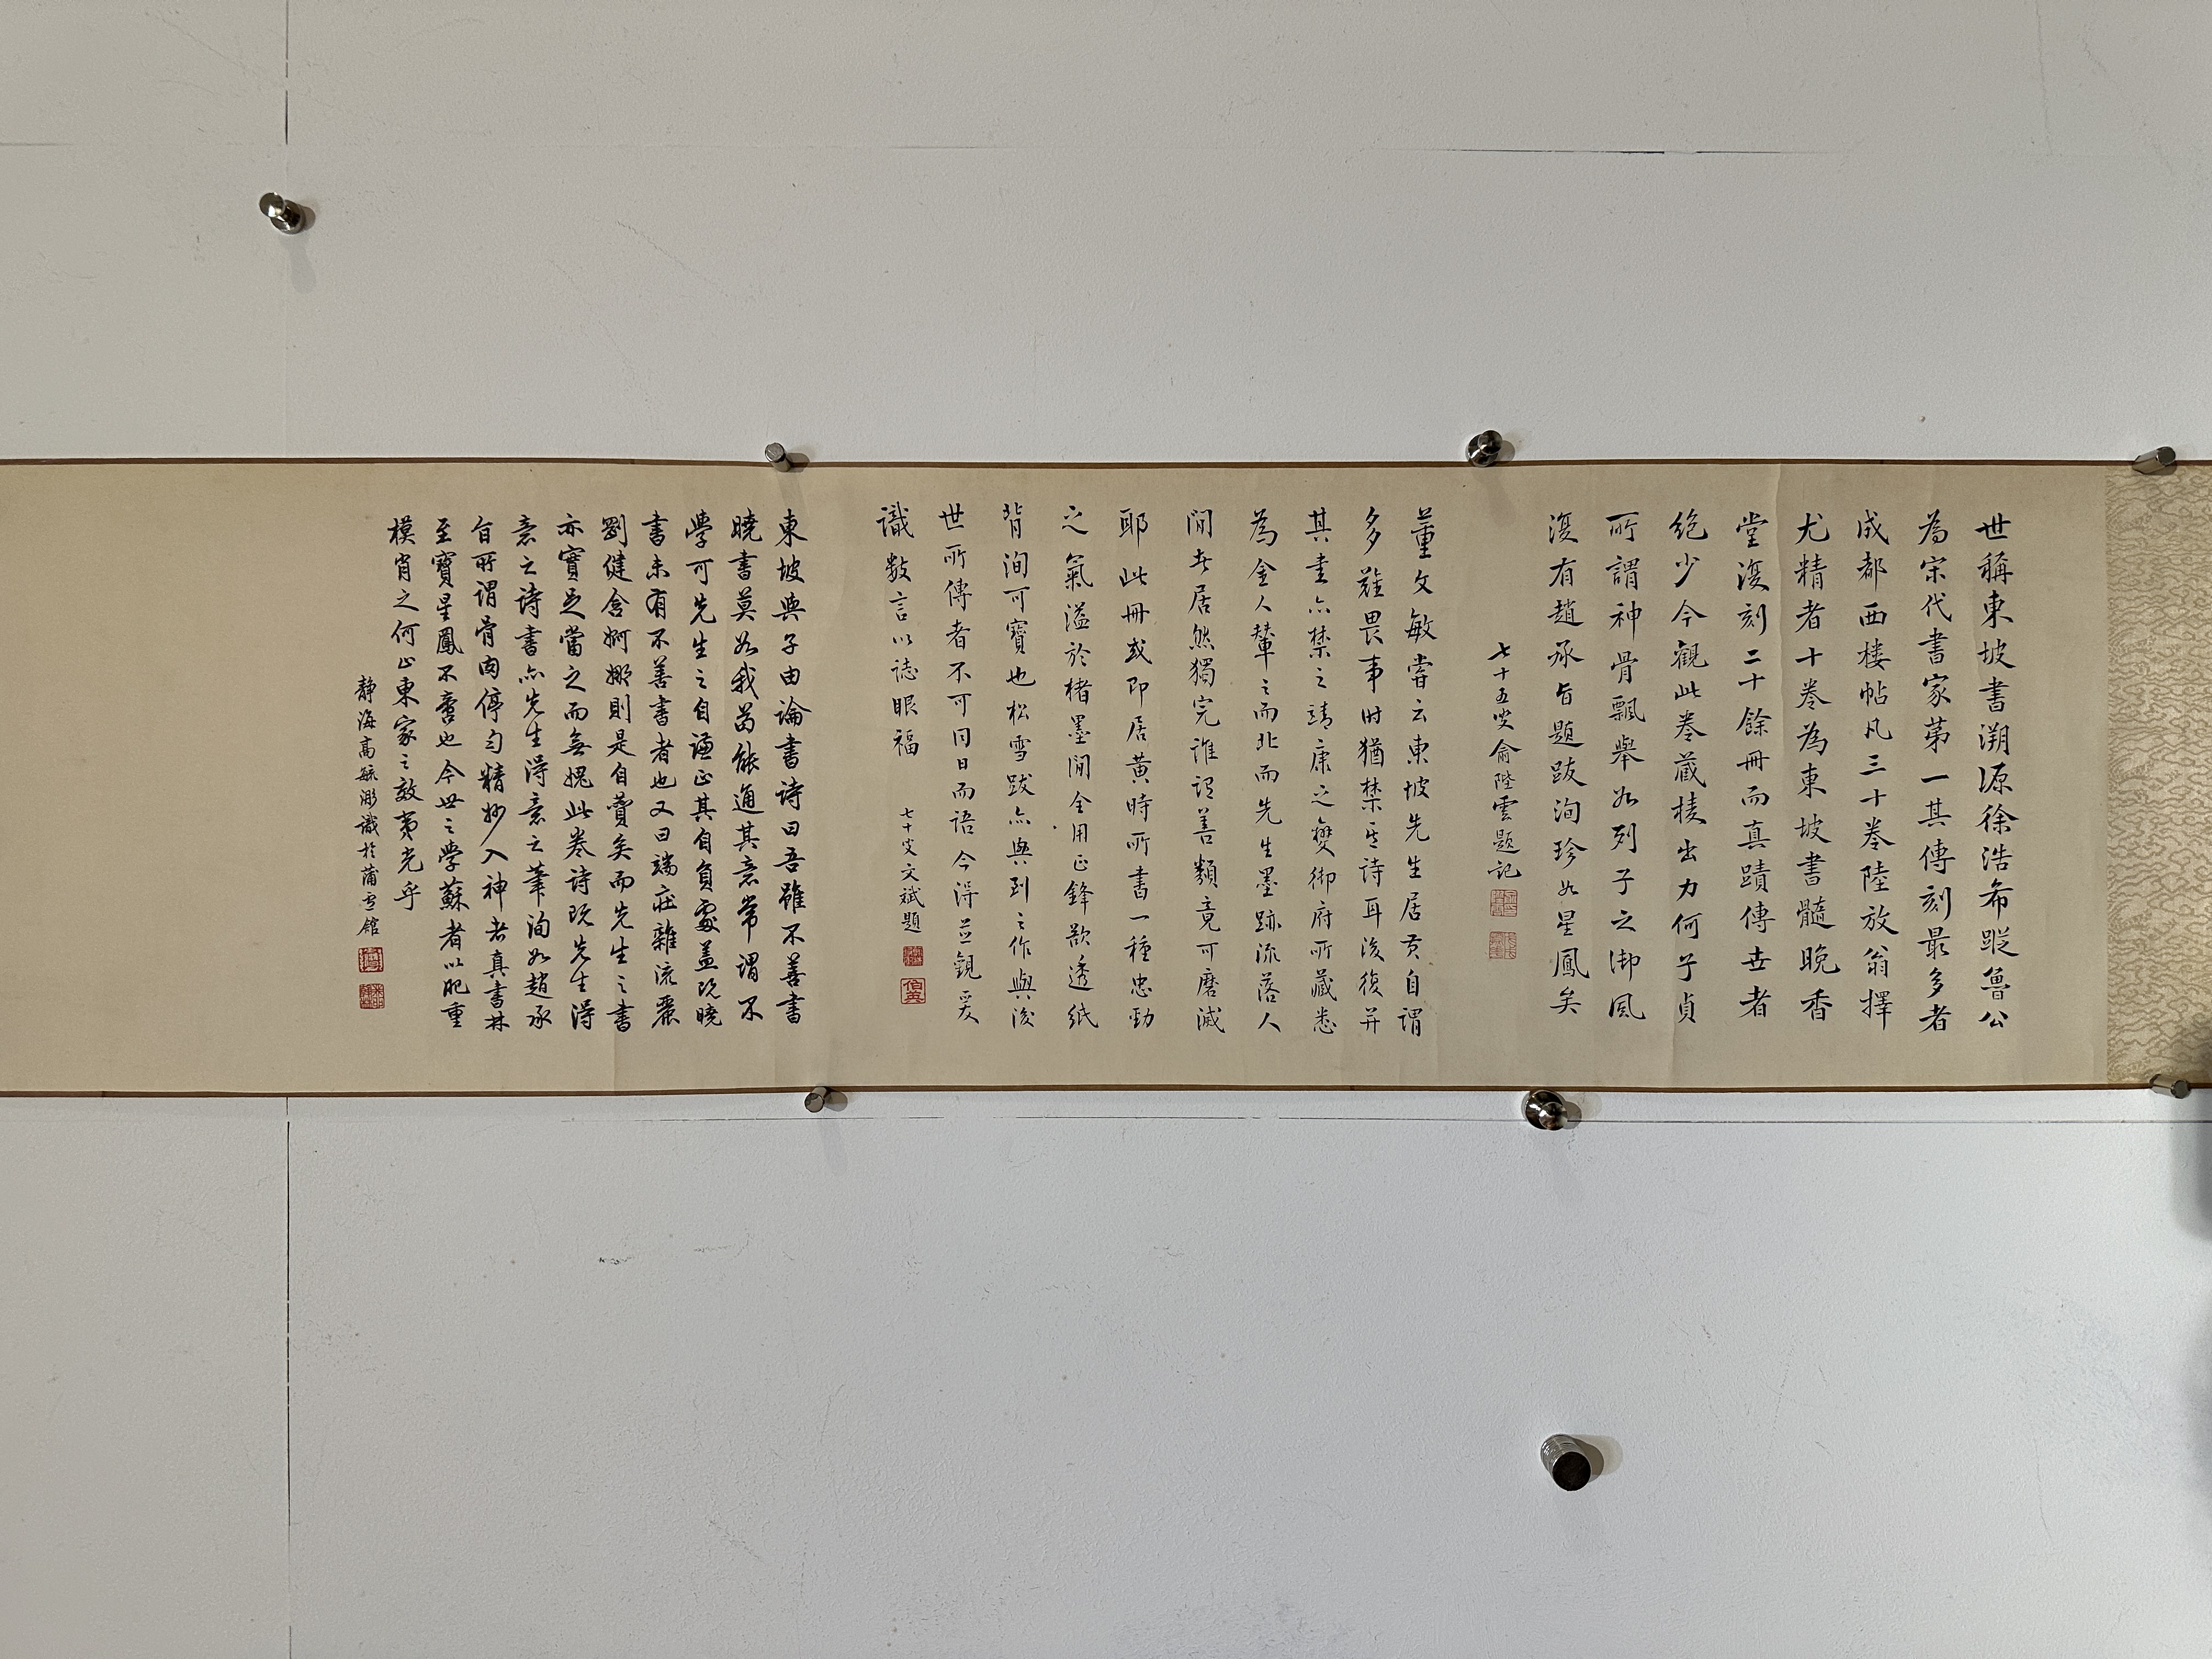 世稱東坡書溯源徐浩希蹤魯公
為宋代書家第一其傳刻最多者
成都西楼帖凡三十卷陸放翁擇
尤精者十卷為東坡書髓晚香
堂復刻二十餘冊而真蹟傳世者
絕少今觀此卷藏棱出力何子貞
所謂神骨飄舉如列子之御風
復有趙承旨題跋洵珍如星鳳矣
七十五叟俞陛雲題記
董文敏嘗云東坡先生居黃自謂
多難畏事时猶禁其詩耳後復并
其書亦禁之靖康之變御府所藏悉
為金人輦之而北而先生墨跡流落人
間者居然獨完誰謂善類竟可磨滅
耶此冊或即居黄時所書一種忠勁
之氣溢於楮墨間全用正鋒欲透紙
背洵可寶也松雪跋亦與到之作與後
世所傳者不可同日而語今得並觀爰
識數言以誌眼福
七十叟文斌題
伯英
東坡與子由論書诗曰吾雖不善書
曉書莫如我苟能通其意常謂不
學可先生之自谦正其自負處盖既曉
書未有不善書者也又曰端莊雜流麗
劉健含婀娜則是自贊矣而先生之書
亦實足當之而無媿此卷诗既先生得
意之诗書亦先生得意之筆洵如趙承
旨所谓骨肉停勻精妙入神者真書林
至寶星鳳不啻也今世之学蘇者以肥重
模肖之何止東家之效夷光乎
静海高毓浵识於蒲雪館